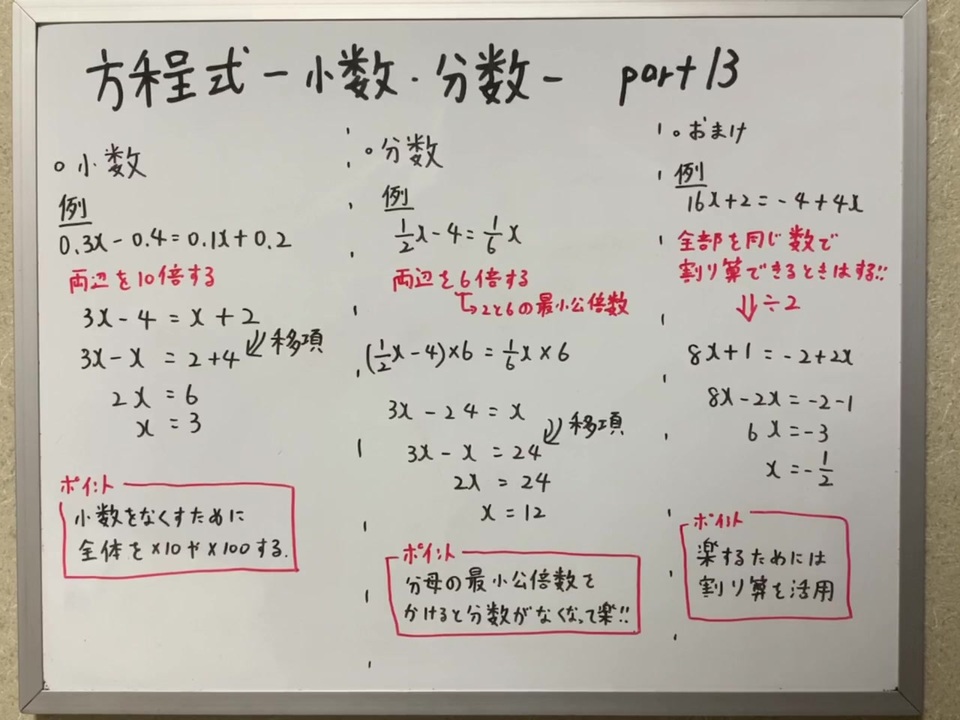 方程式 -小数・分数- part13
○小数
例
0.3x-0.4=0.1x+0.2
両辺を10倍する
3x-4=x+2
3x-x=2+4
移項
2x=6
x=3
ポイント
小数をなくすために
全体を×10や×100する.
○分数
例
1/2x-4=1/6x
両辺を6倍する
↳2と6の最小公倍数
(1/2x-4)×6=1/6x×6
3x-24=x
3x-x=24
移項
2x=24
x=12
ポイント
分母の最小公倍数を
かけると分数がなくなって楽!!
○おまけ
例
16x+2=-4+4x
全部を同じ数で
割り算できるときはする!!
⇓÷2
8x+1=-2+2x
8x-2x=-2-1
6x=-3
x=-1/2
ポイント
楽するためには
割り算を活用